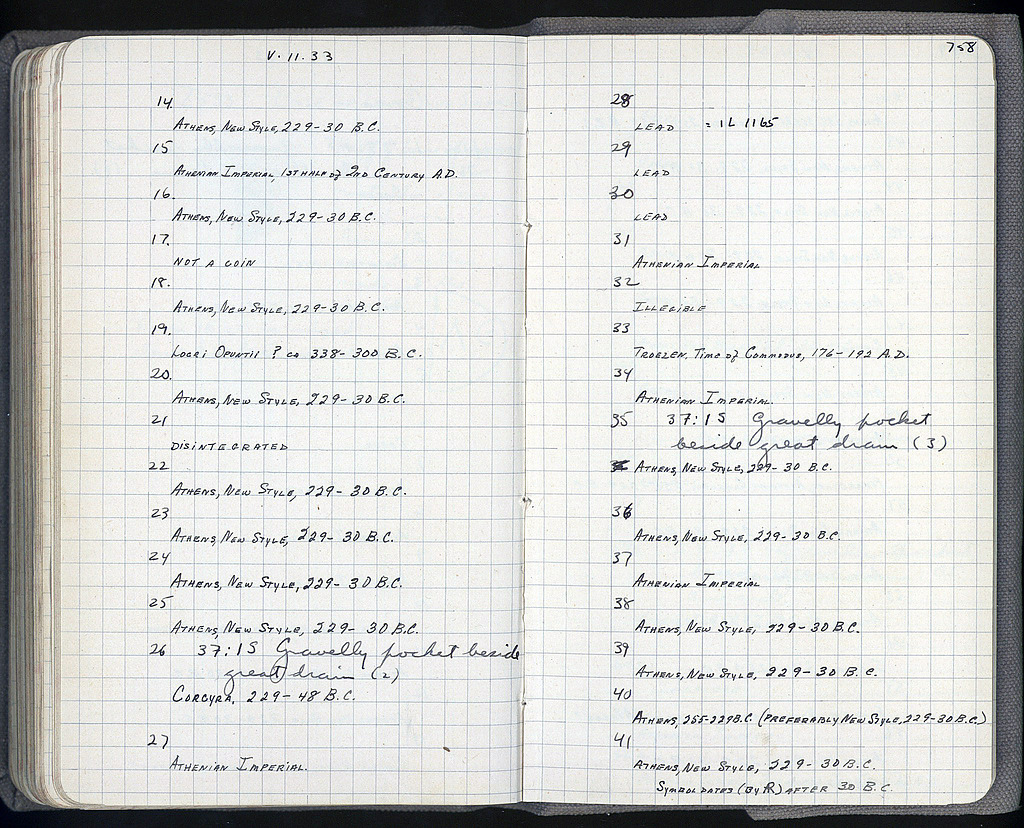 V. 11. 33
14.
ATHENS, NEW STYLE, 229-30 B.C.
15
ATHENIAN IMPERIAL, 1ST HALF of 2ND CENTURY A.D.
16.
ATHENS, NEW STYLE, 229-30 B.C.
17.
NOT A COIN
18.
ATHENS, NEW STYLE, 229-30 B.C.
19.
LOCRI OPUNTII ? ca 338-300 B.C.
20.
ATHENS, NEW STYLE, 229-30 B.C.
21
DISINTEGRATED
22
ATHENS, NEW STYLE, 229-30 B.C.
23
ATHENS, NEW STYLE, 229-30 B.C.
24
ATHENS, NEW STYLE, 229-30 B.C.
25
ATHENS, NEW STYLE, 229-30 B.C.
26 37:15 Gravelly pocket beside
great drain (2)
CORCYRA, 229-48 B.C.
27
ATHENIAN IMPERIAL.
758
28
LEAD = IL 1165
29
LEAD
30
LEAD
31
ATHENIAN IMPERIAL
32
ILLEGIBLE
33
TROEZEN, Time of COMMODUS, 176-192 A.D.
34
ATHENIAN IMPERIAL.
35 37:15 Gravelly pocket
beside great drain (3)
ATHENS, NEW STYLE, 229-30 B.C.
36
ATHENS, NEW STYLE, 229-30 B.C.
37
ATHENIAN IMPERIAL
38
ATHENS, NEW STYLE, 229-30 B.C.
39
ATHENS, NEW STYLE, 229-30 B.C.
40
ATHENS, 255-229 B.C. (PREFERABLY NEW STYLE, 229-30 B.C.)
41
ATHENS, NEW STYLE, 229-30 B.C.
SYMBOL DATES (BY R) AFTER 30 B.C.